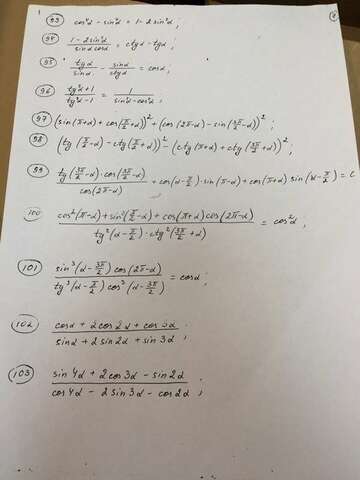 93 cos⁴α - sin⁴α = 1 - 2 sin²α ;
94 (1 - 2 sin²α)/(sinα cosα) = ctgα - tgα ;
95 tgα/sinα - sinα/ctgα = cosα ;
96 (tg²α + 1)/(tg²α - 1) = 1/(sin²α - cos²α) ;
97 (sin(π+α) + cos(π/2+α))² + (cos(2π-α) - sin(π/2-α))² ;
98 (tg(π/2-α) - ctg(π/2+α))² - (ctg(π+α) + ctg(3π/2+α))² ;
99 (tg(3π/2-α)·cos(3π/2-α))/cos(2π-α) + cos(α-π/2)·sin(π-α) + cos(π+α) sin(α-π/2) = c
100 (cos²(π-α) + sin²(π/2-α) + cos(π+α) cos(2π-α))/(tg²(α-π/2)·ctg²(3π/2+α)) = cos²α ;
101 (sin³(α-3π/2) cos(2π-α))/(tg³(α-π/2) cos³(α-3π/2)) = cosα ;
102 (cosα + 2cos2α + cos3α)/(sinα + 2sin2α + sin3α) ;
103 (sin4α + 2cos3α - sin2α)/(cos4α - 2sin3α - cos2α) ;